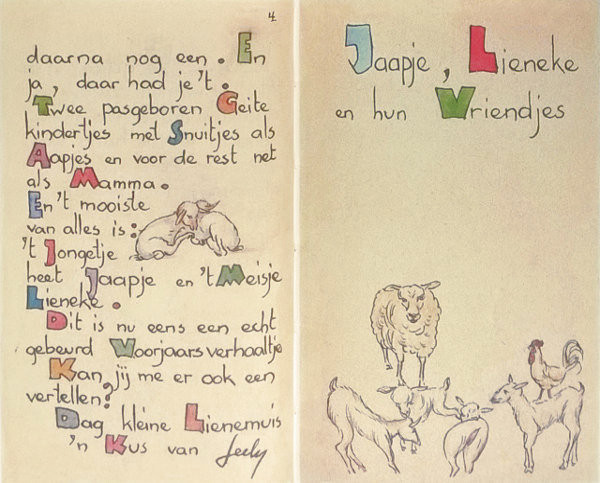 4
daarna nog een. En
ja, daar had je't.
Twee pasgeboren Geite
kindertjes met Snuitjes als
Aapjes en voor de rest net
als Mamma.
En't mooiste
van alles is:
't Jongetje
heet Jaapje en 't Meisje
Lieneke.
Dit is nu eens een echt
gebeurd Voorjaarsverhaaltje
Kan jij me er ook een
vertellen?
Dag kleine Lienemuis
'n Kus van
Jaapje, Lieneke
en hun Vriendjes